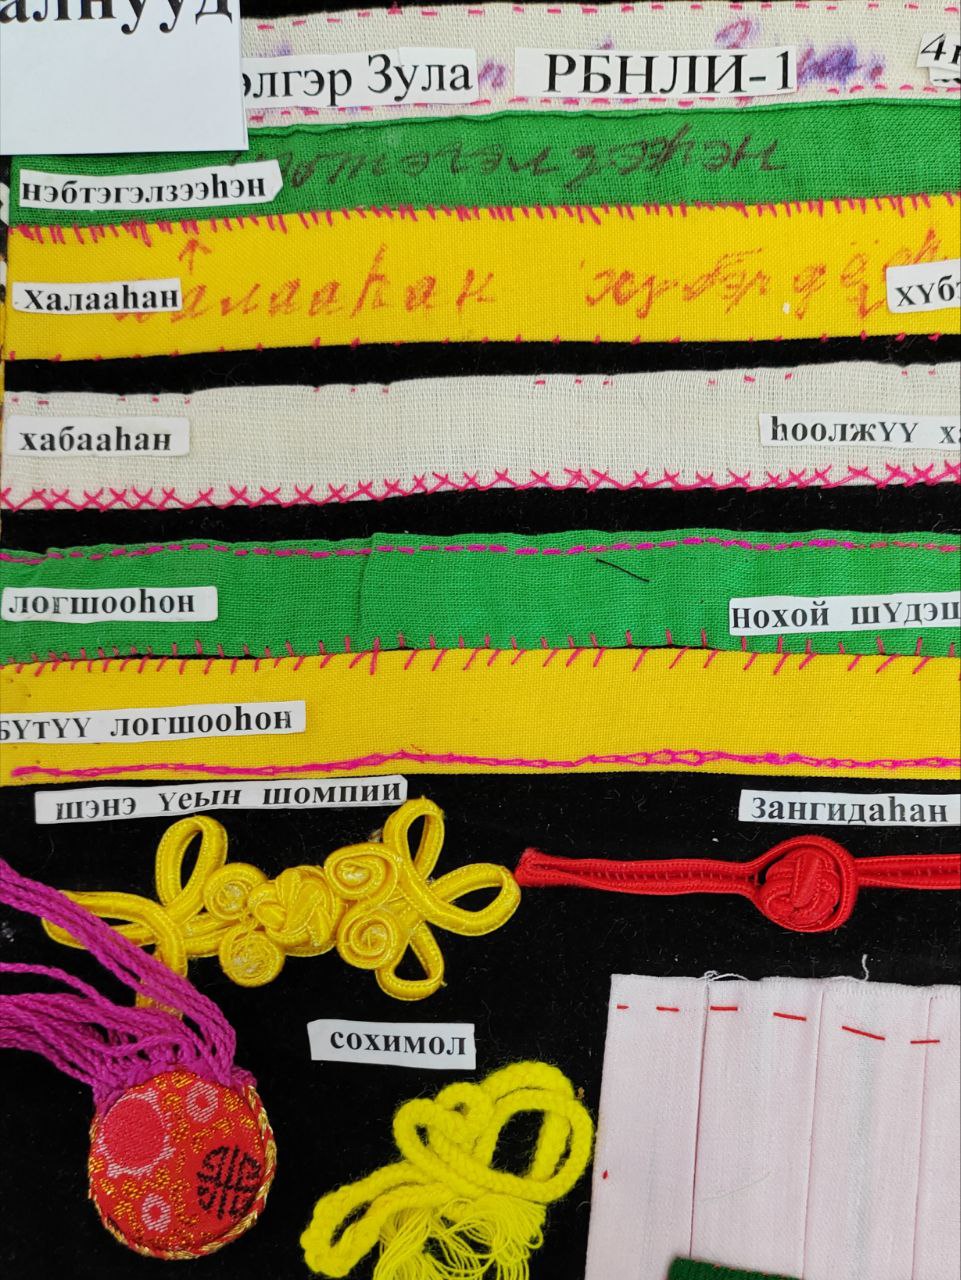 алнууд
элгэр Зула РБНЛИ-1
нэбтэгэлзээһэн
халааһан
халааһан хүбэрдэ
хабааһан
һоолжүү ха
логшооһон
Нохой шүдэш
БҮТҮҮ логшооһон
шэнэ үеын шомпии
Зангидаһан
сохимол